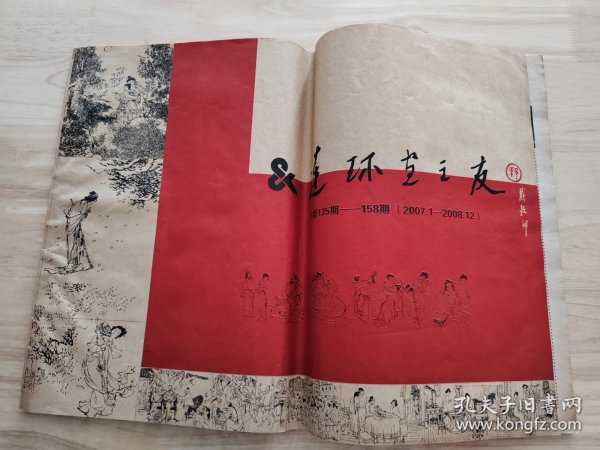 & 连环画之友
总第135期——158期（2007.1—2008.12）
孔夫子旧书网
www.kongfz.com